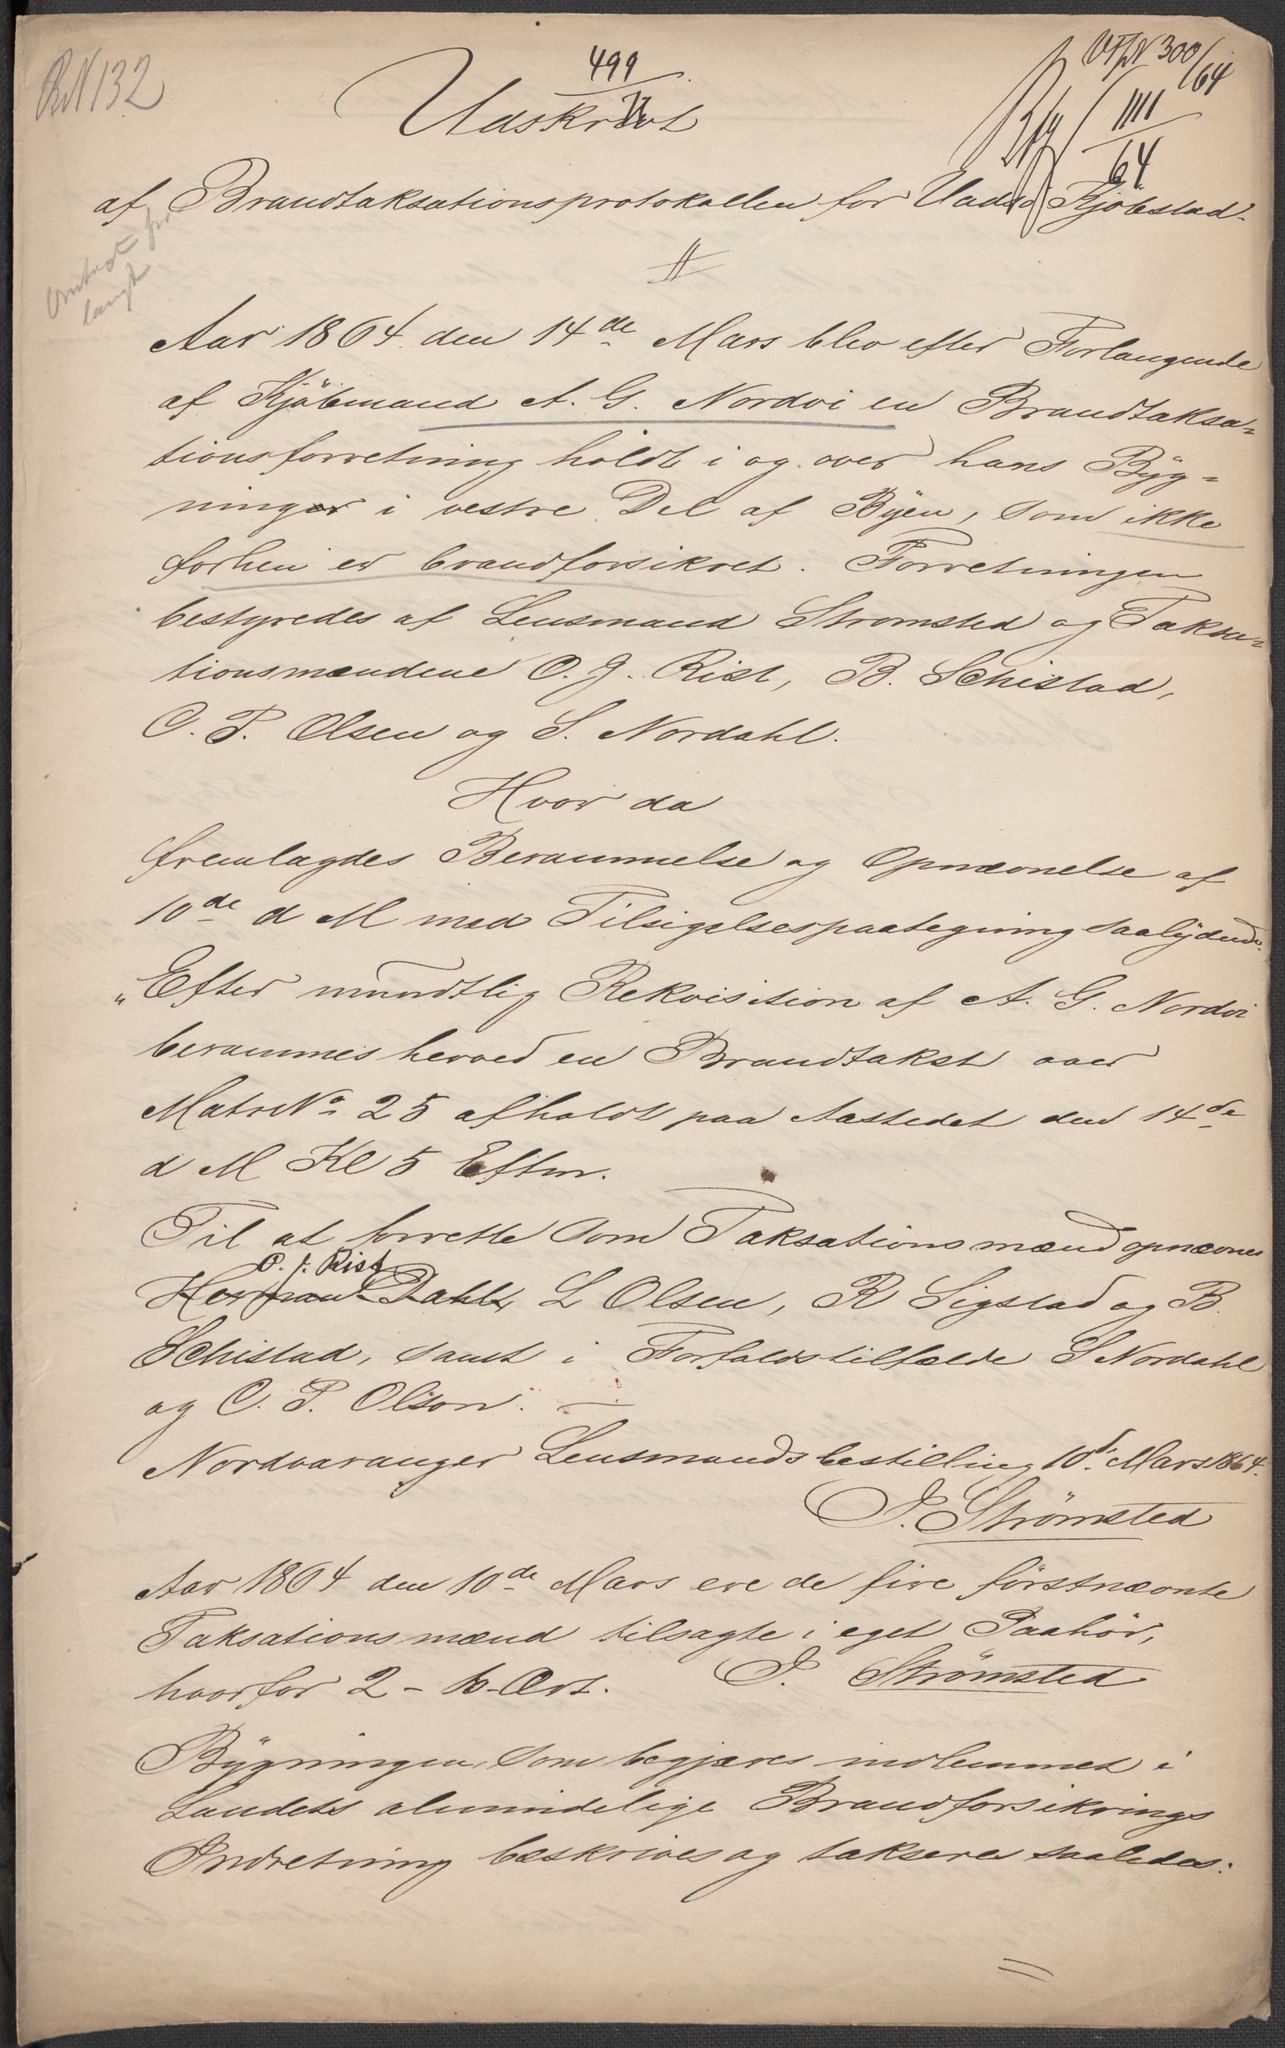 RN 132
499
77
VFN 300/64
1111
64
Udskrivt
af Brandtaksationsprotokollen for Vadsø Kjöbstad.
Omtakst
langt
Aar 1864 den 14de Mars blev efter Forlangende
af Kjöbmand A. G. Nordvi en Brandtaksa=
tionsforretning holdt i og over hans Byg=
ninger i vestre Del af Byen, som ikke
forhen er brandforsikret. Forretningen
bestyredes af Lensmand Strømsted og Taksa=
tionsmændene O. J. Rist, B. Schistad,
C. P. Olsen og S. Nordahl.
Hvor da
fremlagdes Berammelse og Opnævnelse af
10de d M med Tilsigelsespaategning saalydende:
"Efter mundtlig Rekvisition af A. G. Nordvi
berammes herved en Brandtakst over
Matr No 25 afholdt paa Aastedet den 14de
d M Kl 5 Efterm.
Til at forrette som Taksationsmænd opnævnes
O. J. Rist
Herman Dahl, L Olsen, R Sigstad og B.
Schistad, samt i Forfaldstilfælde S Nordahl
og C. P. Olson.
Nordvaranger Lensmandsbestilling 10d. Mars 1864.
P. Strømsted
Aar 1864 den 10de Mars ere de fire förstnævnte
Taksationsmænd tilsagte i eget Paahör,
hvorfor 2 - to - Ort. P. Strømsted
Bygningen, som begjæres indlemmet i
Landets almindelige Brandforsikrings
Indretning beskrives og takseres saaledes: